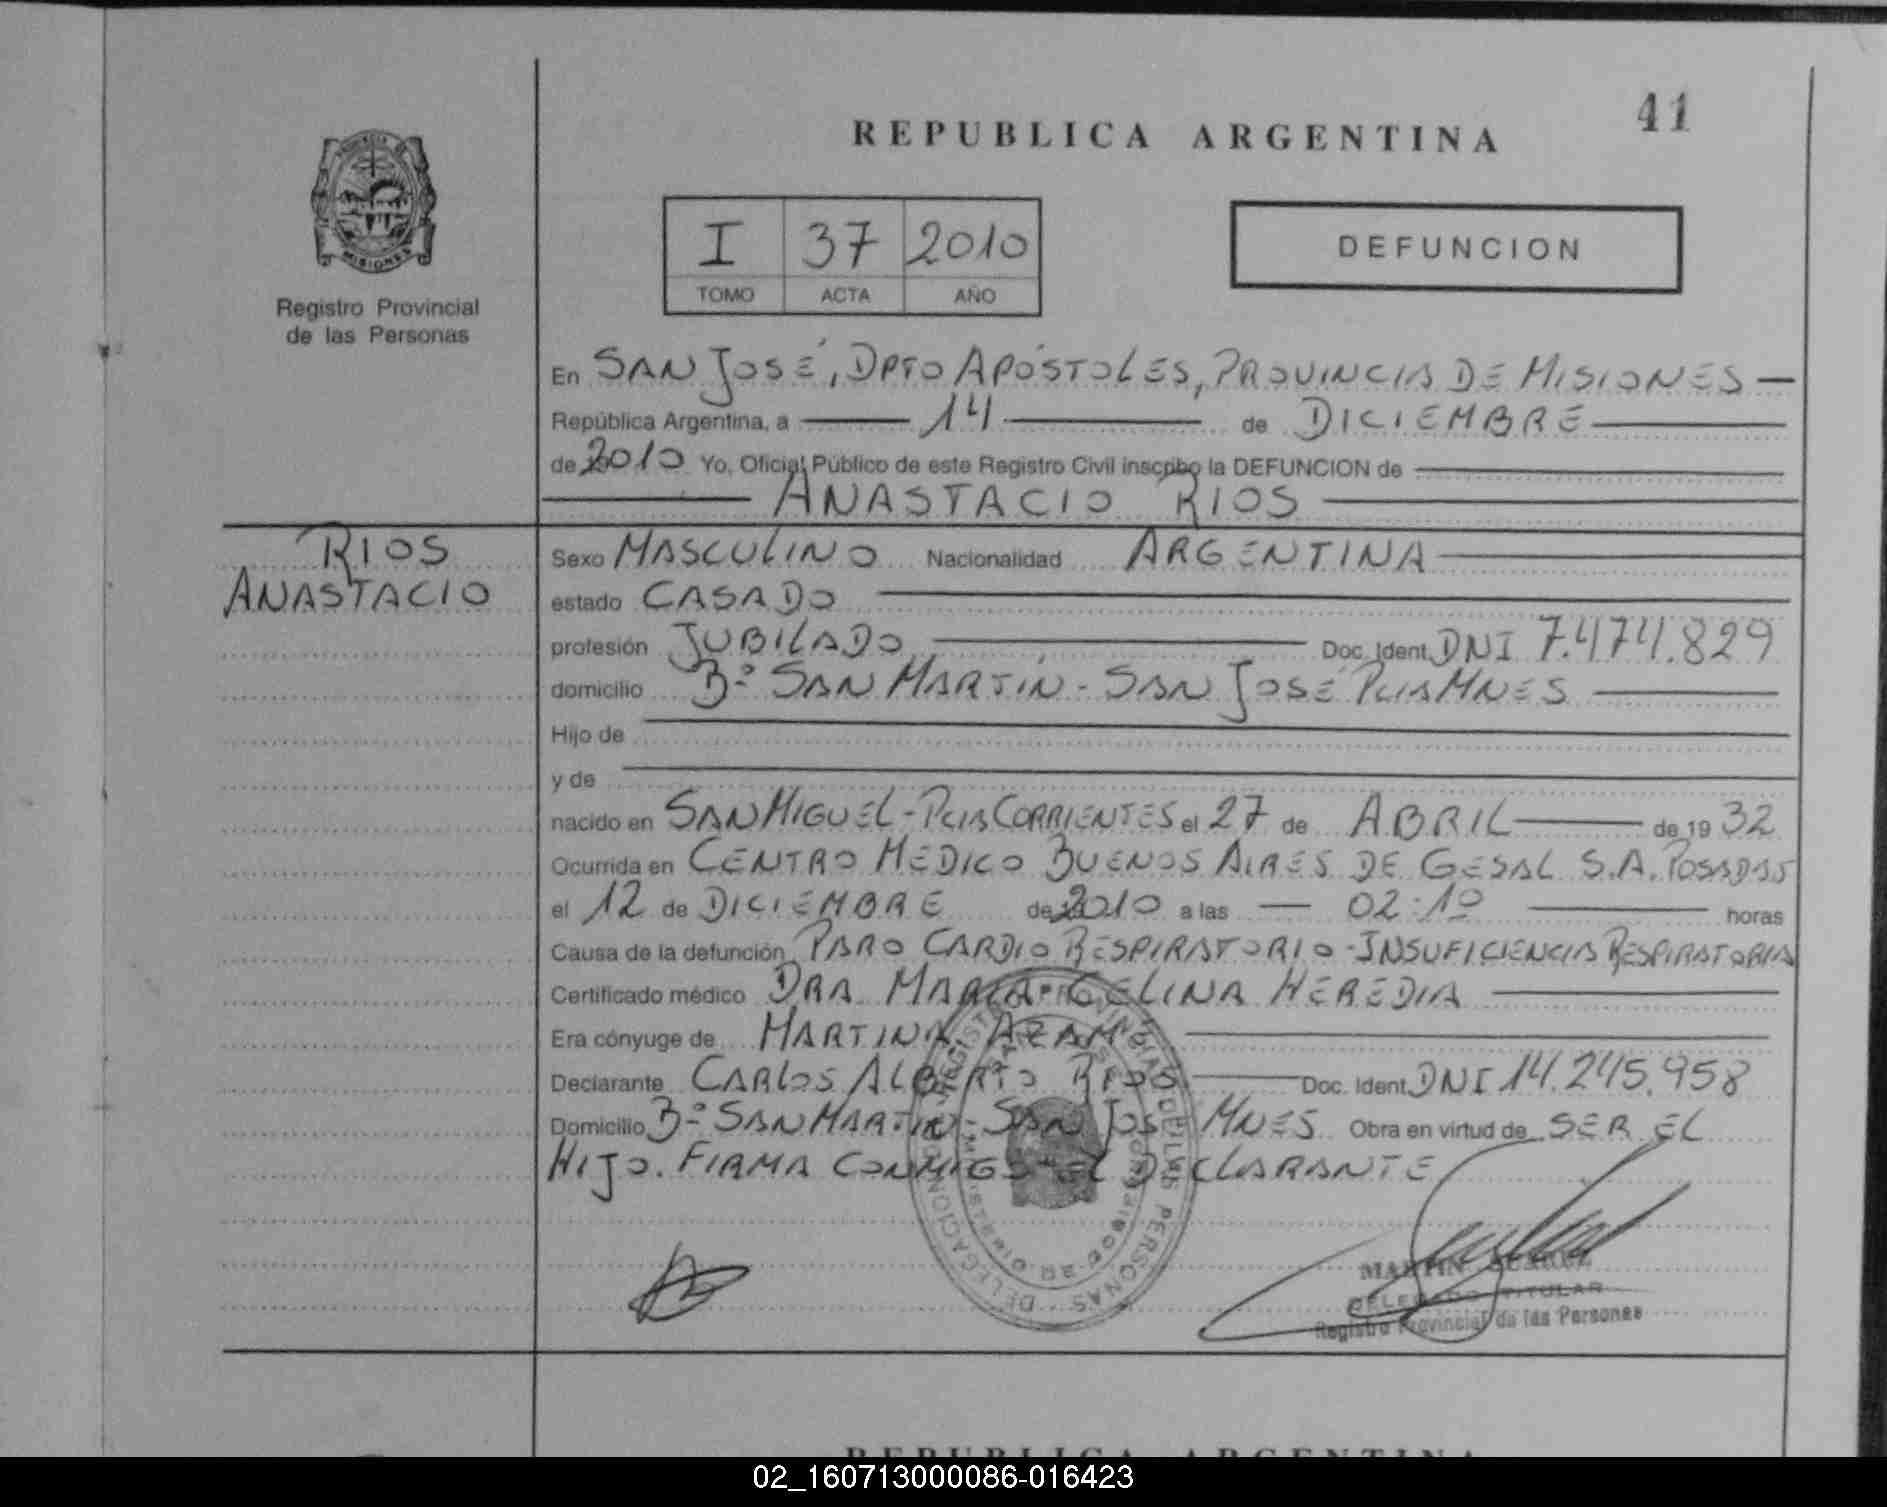 41
REPUBLICA ARGENTINA
PROVINCIA DE
MISIONES
Registro Provincial
de las Personas
I 37 2010
TOMO ACTA AÑO
DEFUNCION
En SAN JOSÉ, DPTO APÓSTOLES, PROVINCIA DE MISIONES —
República Argentina, a — 14 — de DICIEMBRE —
de 2010 Yo, Oficial Público de este Registro Civil inscribo la DEFUNCION de —
— ANASTACIO RIOS —
RIOS
ANASTACIO
Sexo MASCULINO Nacionalidad ARGENTINA —
estado CASADO —
profesión JUBILADO — Doc. Ident. DNI 7.474.829
domicilio Bº SAN MARTÍN - SAN JOSÉ PCIA MNES —
Hijo de —
y de —
nacido en SAN MIGUEL - PCIA CORRIENTES el 27 de ABRIL — de 19 32
Ocurrida en CENTRO MEDICO BUENOS AIRES DE GESAL S.A. POSADAS
el 12 de DICIEMBRE de 2010 a las — 02:10 — horas
Causa de la defunción PARO CARDIO RESPIRATORIO - INSUFICIENCIA RESPIRATORIA
Certificado médico DRA. MARIA CELINA HEREDIA —
Era cónyuge de MARTINA —
Declarante CARLOS ALBERTO RIOS — Doc. Ident. DNI 14.245.958
Domicilio Bº SAN MARTIN - SAN JOSÉ MNES Obra en virtud de SER EL
HIJO. FIRMA CONMIGO EL DECLARANTE
MARTIN SUAREZ
DELEGADO TITULAR
Registro Provincial de las Personas
REPUBLICA ARGENTINA
02_160713000086-016423